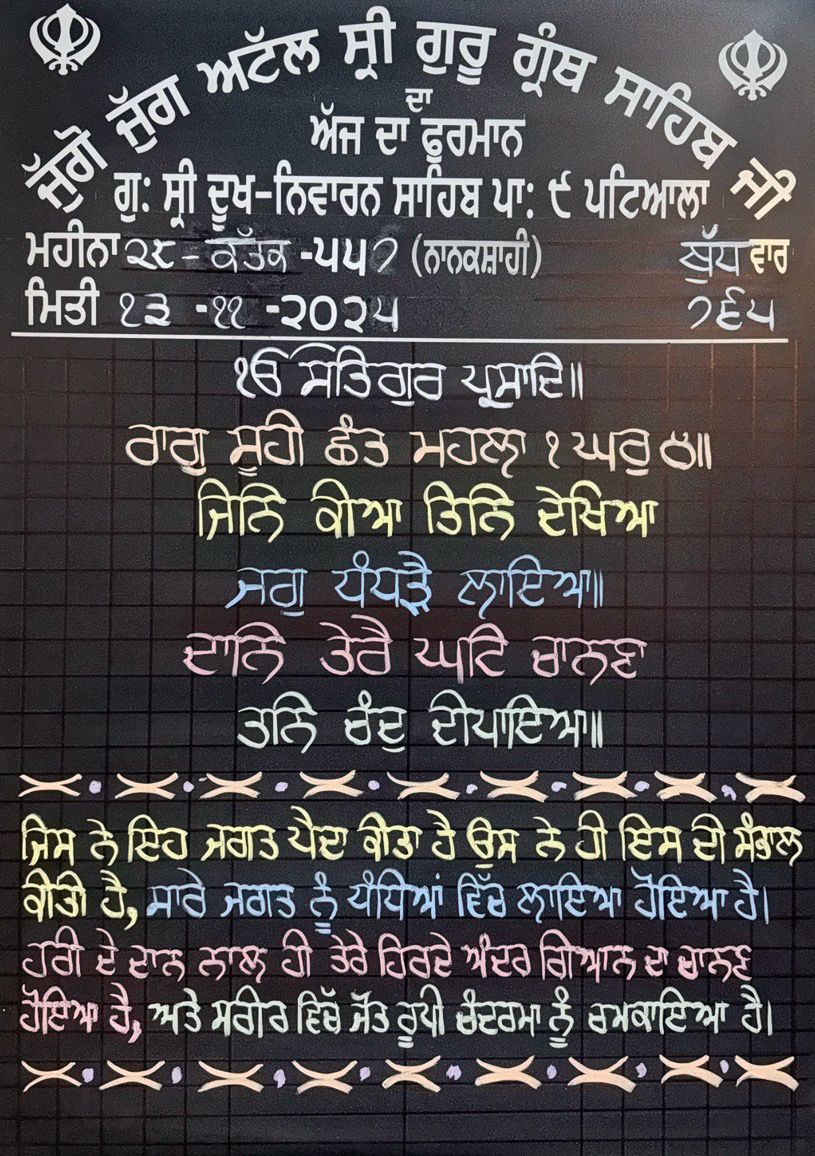 ਜੁੱਗੋ ਜੁੱਗ ਅਟੱਲ ਸ੍ਰੀ ਗੁਰੂ ਗ੍ਰੰਥ ਸਾਹਿਬ ਜੀ
ਦਾ
ਅੱਜ ਦਾ ਫੁਰਮਾਨ
ਗੁ: ਸ੍ਰੀ ਦੂਖ-ਨਿਵਾਰਨ ਸਾਹਿਬ ਪਾ: ੯ ਪਟਿਆਲਾ
ਮਹੀਨਾ ੨੮ - ਕੱਤਕ -੫੫੭ (ਨਾਨਕਸ਼ਾਹੀ) ਬੁੱਧ ਵਾਰ
ਮਿਤੀ ੧੩ -੧੧ -੨੦੨੫ ੭੬੫
ੴ ਸਤਿਗੁਰ ਪ੍ਰਸਾਦਿ॥
ਰਾਗੁ ਸੂਹੀ ਛੰਤ ਮਹਲਾ ੧ ਘਰੁ ੪॥
ਜਿਨਿ ਕੀਆ ਤਿਨਿ ਦੇਖਿਆ
ਜਗੁ ਧੰਧੜੈ ਲਾਇਆ॥
ਦਾਨਿ ਤੇਰੈ ਘਟਿ ਚਾਨਣਾ
ਤਨਿ ਚੰਦੁ ਦੀਪਾਇਆ॥
ਜਿਸ ਨੇ ਇਹ ਜਗਤ ਪੈਦਾ ਕੀਤਾ ਹੈ ਉਸ ਨੇ ਹੀ ਇਸ ਦੀ ਸੰਭਾਲ
ਕੀਤੀ ਹੈ, ਸਾਰੇ ਜਗਤ ਨੂੰ ਧੰਧਿਆਂ ਵਿੱਚ ਲਾਇਆ ਹੋਇਆ ਹੈ।
ਹਰੀ ਦੇ ਦਾਨ ਨਾਲ ਹੀ ਤੇਰੇ ਹਿਰਦੇ ਅੰਦਰ ਗਿਆਨ ਦਾ ਚਾਨਣ
ਹੋਇਆ ਹੈ, ਅਤੇ ਸਰੀਰ ਵਿੱਚ ਜੋਤ ਰੂਪੀ ਚੰਦਰਮਾ ਨੂੰ ਚਮਕਾਇਆ ਹੈ।